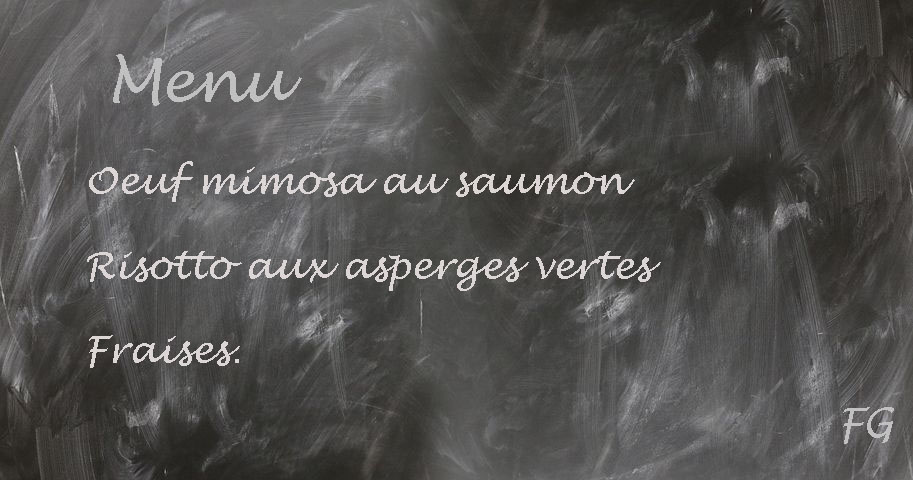 Menu
Oeuf mimosa au saumon
Risotto aux asperges vertes
Fraises.
FG